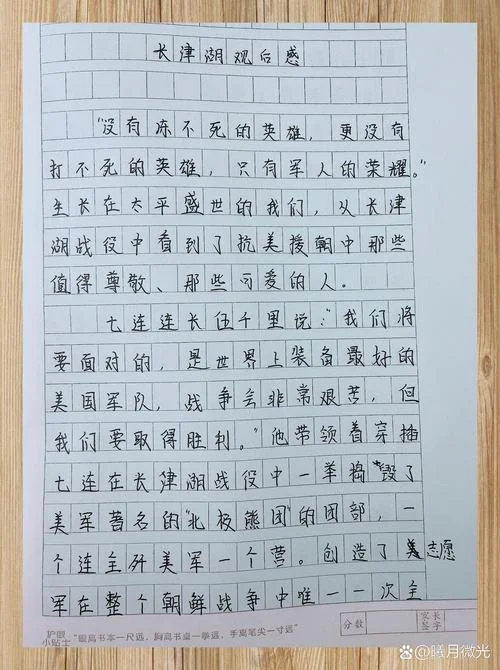 长津湖观后感
"没有冻不死的英雄，更没有
打不死的英雄，只有军人的荣耀。"
生长在太平盛世的我们，从长津
湖战役中看到了抗美援朝中那些
值得尊敬、那些可爱的人。
七连连长伍千里说："我们将
要面对的，是世界上装备最好的
美国军队，战争会非常艰苦，但
我们要取得胜利。"他带领着穿插
七连在长津湖战役中一举捣毁了
美军著名的"北极熊团"的团部，一
个连全歼美军一个营。创造了志愿
军在整个朝鲜战争中唯一一次全
护眼
小贴士
"眼离书本一尺远，胸离书桌一拳远，手离笔尖一寸远"
分数
家长
签字
@曦月微光